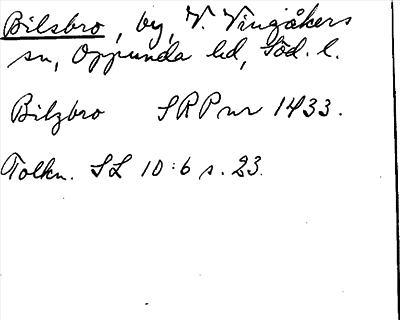 Bilsbro, by, V. Vingåkers
sn, Oppunda hd, Söd. l.
Bilzbro SRP nr 1433.
Tolkn. SL 10:6 s. 23.